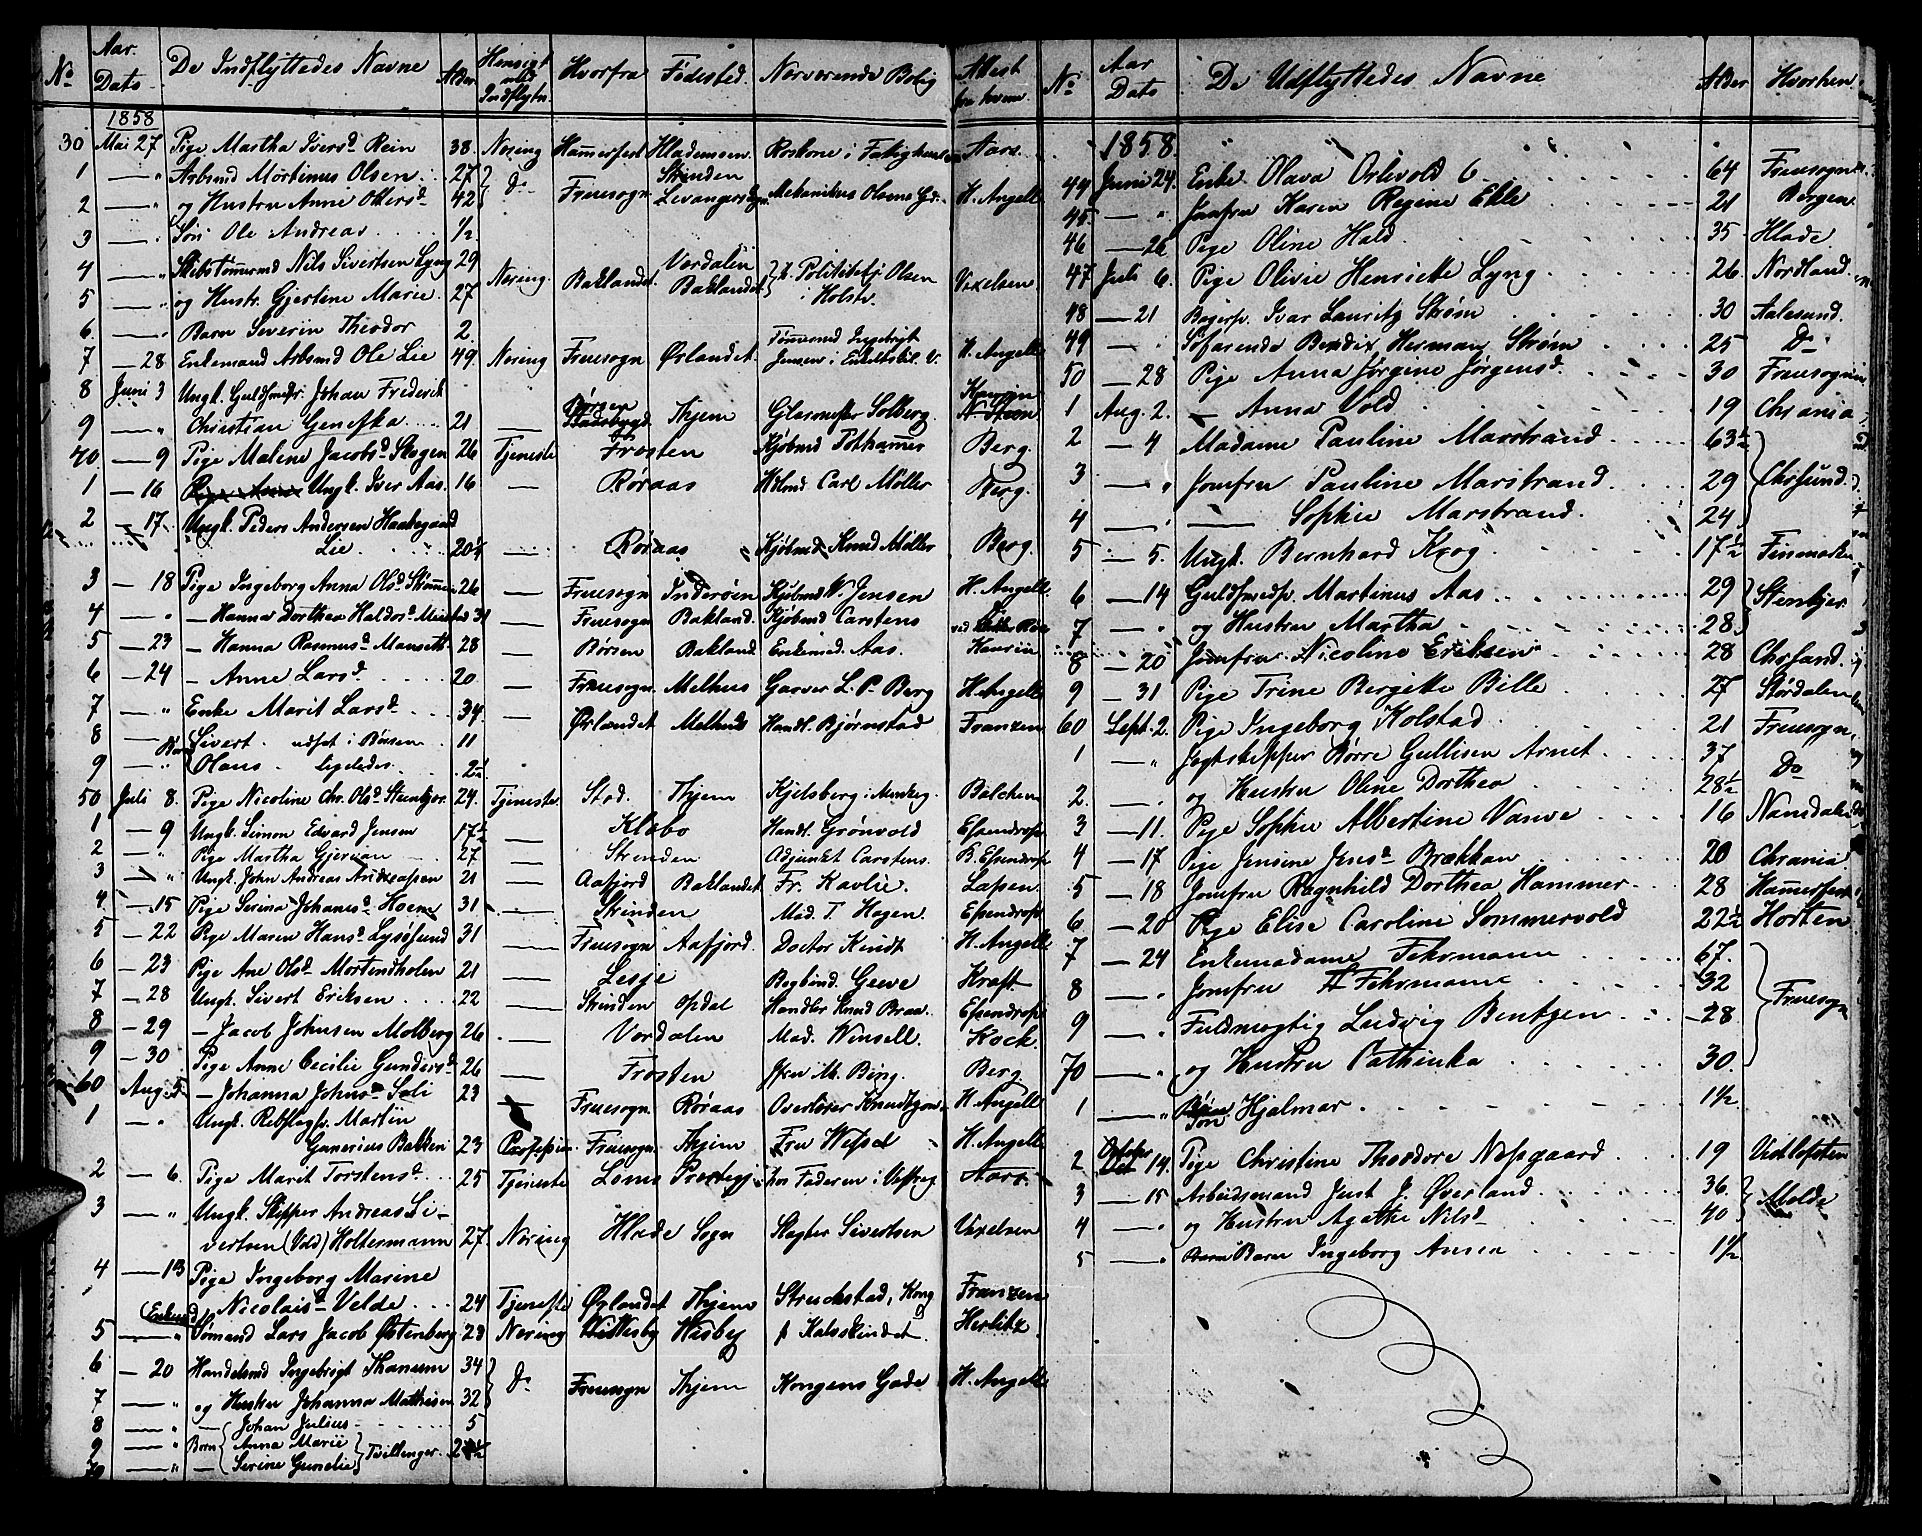 No Aar. Dato De Indflyttedes Navne Alder Hensigt med Indflytn. Hvorfra Fødested. Nærværende Bolig Attest fra hvem
1858
30 Mai 27 Pige Martha Iversd Rein 38. Næring Hammerfest Hlademsen Aars
1 — " Arbmd Mortinus Olsen 27 Do Fruesogn Strinden Mekanikus Olsens Gd. H. Angell
2 — " og Hustru Anne Olersd 42 Levanger
3 — " Søn Ole Andreas ½
4 — " Skibstømermd Nils Sivertsen Lyng 29 Næring Baklandet. Værdalen Politibetj Olsen Vexelsen
5 — " og Hustr. Gjertine Marie. 27 Baklandet i Holstv.
6. — " Barn Severin Theodor 2.
7 — 28 Enkemand Arbsmd Ole Lie 49. Næring Fruesogn Ørlandet. Tømmermd Ingebrigt Jensen i Enkeltskil. V. H. Angell
8 Juni 3 Ungk. Guldsmsv. Johan Frederik
9 — " Christian Geneska 21 — Børsen Thjem Glasmester Solberg.
40 — 9 Pige Maline Jacobsd Skogen 26 Tjeneste Frosten Kjøbmd Tothammer Berg.
1 — 16 Ungk. Iver Aas. 16 — Røraas Hdlmd Carl Møller Berg.
2 — 17. Ungk. Peders Andersen Haabegaard
Lie 20½ — Røraas Kjøbmd Knud Møller Berg.
3 — 18 Pige Ingeborg Anna Olsd 26 — Fruesogn Inderøen Kjøbmd W. Jensen H. Angell
4 — " — Hanna Dorthea Haldorsd 31 — Fruesogn Bakland. Kjøbmd Carstens
5 — 23 — Hanna Rasmusd Mansett. 28 — Børsen Bakland Enkemd. Aas.
6 — 24 — Anne Larsd 20 — Fruesogn. Melhus Garver L. P. Berg H. Angell
7 — " Enke Marit Larsd 34. — Ørlandet Melhus Handl. Bjørnstad Franzen
8 — Børn Sivert. udsat i Børsen 11
9 — " Olaus ligeledes 2½
50 Juli 8. Pige Nicoline Chr. Olsd Steenkjer. 24. Tjeneste. Stod. Thjem Kjelsberg i Munkeg. Balchen
1 — 9 Ungk. Simon Edvard Jensen 17½ — Klæbo Handl. Grønvold Essendrop
2 — " Pige Martha Gjervan 27 — Strinden Adjunkt Carstens. B. Essendrop
3 — " Ungk. John Andreas Andreassen 21 — Aafjord Baklandet Fr. Kavlie. Lassen
4 — 15 Pige Serina Johansd Hoem 31 — Strinden Mad. T. Hagen. Essendrop
5 — 22 Pige Maren Hansd Lysøsund 31 — Fruesogn Aafjord. Doctor Kindt H. Angell
6 — 23 Pige Ane Olsd Mortendholen 21 — Lesje Bogbind. Geewe Kraft
7 — 28 Ungk. Sivert Eriksen 22 — Strinden Opdal Handler Knud Braa. Essendrop
8 — 29 — Jacob Johnsen Molberg 26 — Værdalen Mad. Winsell. Kock.
9 — 30 Pige Anne Cecilie Gundersd 26 — Frosten Jfru M. Bing. Berg
60 Aug. 5 — Johanna Johnsd Soli 23 — Fruesogn. Røraas Overlærer Knudtzon. H. Angell
1 — " Ungk. Rebslagsv. Martiin
Gunerius Bakken 23 Profession Fruesogn. Thjem Fru Wesset H. Angell
2 — 6. Pige Marit Torstensd 25 Tjeneste Loms Præstegj. hos Faderen i Vestreg. Aars
3 — " Ungk. Skipper Andreas Si-
vertsen (Vold) Holtermann 27. Næring Hlade Sogn Slagter Sivertsen Vexelsen
4 — 13 Pige Ingeborg Marine
Nicolaisd Velde 24 Tjeneste Ørlandet Thjem Struckstad, Kong Franzen
5 — " (Enkemd) Sømand Lars Jacob Østenberg 28 Næring Wisby p Kalsskindet. Herlitz.
6 — 20 Handelsmd Ingebrigt Thanum 34 Do Fruesogn Thjem Kongens Gade H. Angell
7 — " og Hustru Johanna Mathisen 32
8 — " — Johan Julius 5
9 — " Børn Anna Marie Tvillinger. 2½
70 — " — Serine Gunelie
No Aar Dato De Udflyttedes Navne Alder Hvorhen
1858.
44 Juni 24. Enke Olava Orlevold 64 Fruesogn
45 — " Jomfru Karen Regine Ekle 21 Bergen.
46 — 26 Pige Oline Hald. 35 Hlade
47 Juli 6. Pige Olivie Henriette Lyng 26 Nordland.
48 — 21 Bøgersv. Ivar Lauritz Strøm 30 Aalesund.
49 — " Søfarende Bendix Herman Strøm 25 Do
50 — 28 Pige Anna Jørgine Jørgensd. 30 Fruesogn
1 Aug. 2. — Anna Vold 19 Chrania
2 — 4 Madame Pauline Marstrand. 63½ Chrsund.
3 — " Jomfru Pauline Marstrand 29
4 — " — Sophie Marstrand. 24
5 — 5. Ungk. Bernhard Krog. 17½ Finmarken
6 — 14 Guldsmedsv. Martinus Aas 29 Stenkjer.
7 — " og Hustru Martha 28.
8 — 20 Jomfru Nicoline Eriksen 28 Chrsand.
9 — 31 Pige Trine Bergitte Bille 27 Stordalen
60 Sept. 2. Pige Ingeborg Kolstad. 21 Fruesogn.
1 — " Jagtskipper Børre Gullisen Arnet 37 Do
2. — " og Hustru Oline Dorthea 28½
3 — 11. Pige Sophie Albertine Vanve 16 Namdalen
4 — 17 Pige Jensine Jensd Brækkan 20 Chrania
5 — 18 Jomfru Ragnhild Dorthea Hammer 28 Hammerfest
6 — 20 Pige Elise Caroline Sommervold 22½ Horten
7 — 24 Enkemadame Fehrmann 67. Fruesogn
8 — " Jomfru Fehrmann 32
9 — " Fuldmægtig Ludvig Bentzen 28
70 — " og Hustru Cathinka 30.
1 — " Søn Hjalmar 1½
2 October 14. Pige Christine Theodore Nesgaard 19 Vestlofoten
3 — 15 Arbeidsmand Just J. Øverland 36. Molde
4 — " og Hustru Agathe Nilsd 40
5 — " Barn Ingeborg Ansea 1½